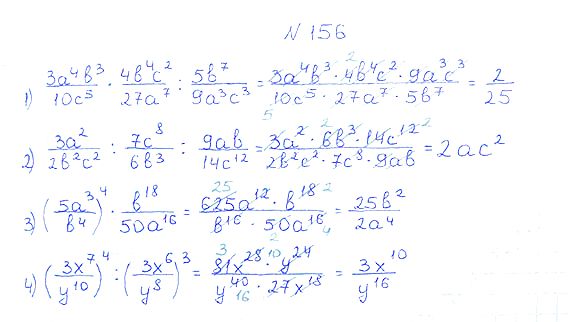 N 156
1) 3a⁴b³/10c⁵ · 4b⁴c²/27a⁷ : 5b⁷/9a³c³ = 3a⁴b³ · 4b⁴c² · 9a³c³/10c⁵ · 27a⁷ · 5b⁷ = 2/25
2) 3a²/2b²c² : 7c⁸/6b³ : 9ab/14c¹² = 3a² · 6b³ · 14c¹²/2b²c² · 7c⁸ · 9ab = 2ac²
3) (5a³/b⁴)⁴ · b¹⁸/50a¹⁶ = 625a¹² · b¹⁸/b¹⁶ · 50a¹⁶ = 25b²/2a⁴
4) (3x⁷/y¹⁰)⁴ : (3x⁶/y⁸)³ = 81x²⁸ · y²⁴/y⁴⁰ · 27x¹⁸ = 3x¹⁰/y¹⁶